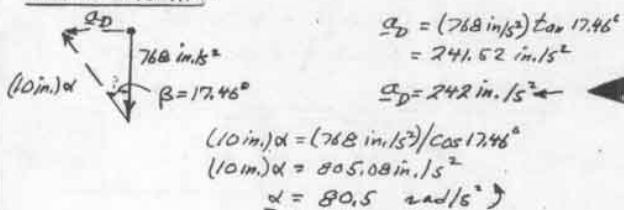 a_D
768 in./s²
(10 in.)α
β = 17.46°
a_D = (768 in/s²) tan 17.46°
= 241.52 in./s²
a_D = 242 in./s² ←
(10 in.)α = (768 in./s²)/cos 17.46°
(10 in.)α = 805.08 in./s²
α = 80.5 rad/s² ↺